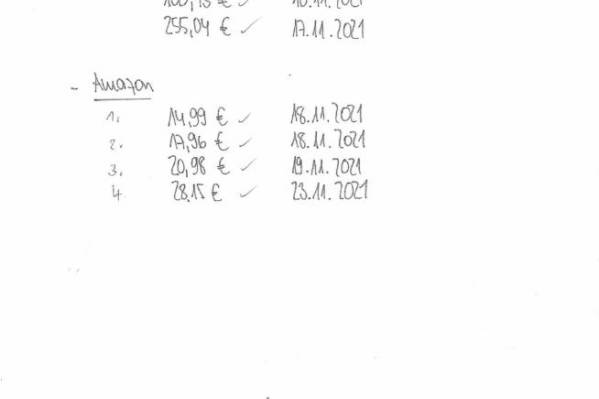 255,04 € ✓ 17.11.2021
- Amazon
1. 14,99 € ✓ 18.11.2021
2. 17,96 € ✓ 18.11.2021
3. 20,98 € ✓ 19.11.2021
4 28,15 € ✓ 23.11.2021